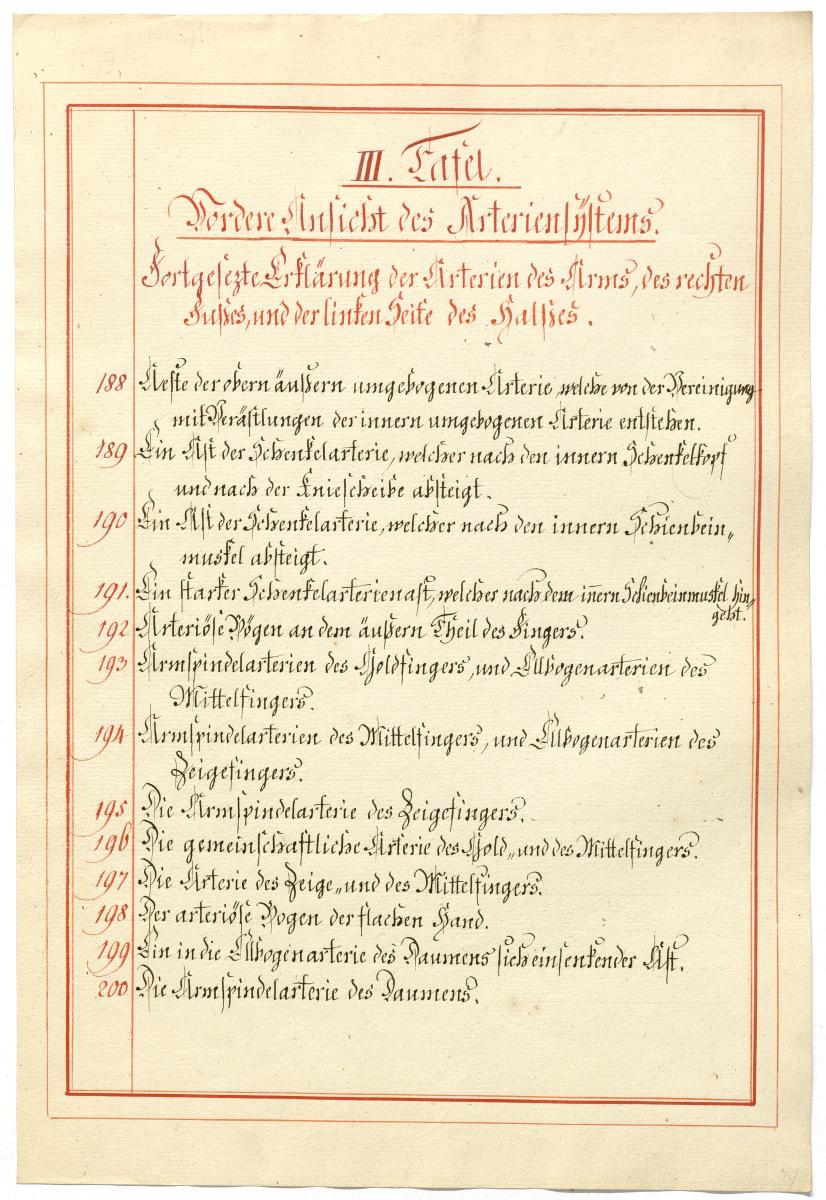 III. Tafel.
Vordere Ansicht des Arteriensÿstems.
Fortgesezte Erklärung der Arterien des Arms, des rechten
Fußes, und der linken Seite des Halses.
188 Aeste der obern äußern umgebogenen Arterie, welche von der Vereinigung
mit Verästlungen der innern umgebogenen Arterie entstehen.
189 Ein Ast der Schenkelarterie, welcher nach den innern Schenkelkopf
und nach der Kniescheibe absteigt.
190 Ein Ast der Schenkelarterie, welcher nach den innern Schienbein„
muskel absteigt.
191. Ein starker Schenkelarterienast, welcher nach dem innern Schienbeinmuskel hin„
geht.
192 Arteriöse Bögen an dem äußern Theil des Fingers.
193 Armspindelarterien des Goldfingers, und Ellbogenarterien des
Mittelfingers.
194 Armspindelarterien des Mittelfingers, und Ellbogenarterien des
Zeigefingers.
195 Die Armspindelarterie des Zeigefingers.
196 Die gemeinschaftliche Arterie des Gold„ und des Mittelfingers.
197 Die Arterie des Zeige„ und des Mittelfingers.
198 Der arteriöse Bogen der flachen Hand.
199 Ein in die Ellbogenarterie des Daumens sich einsenkender Ast.
200 Die Armspindelarterie des Daumens.
79